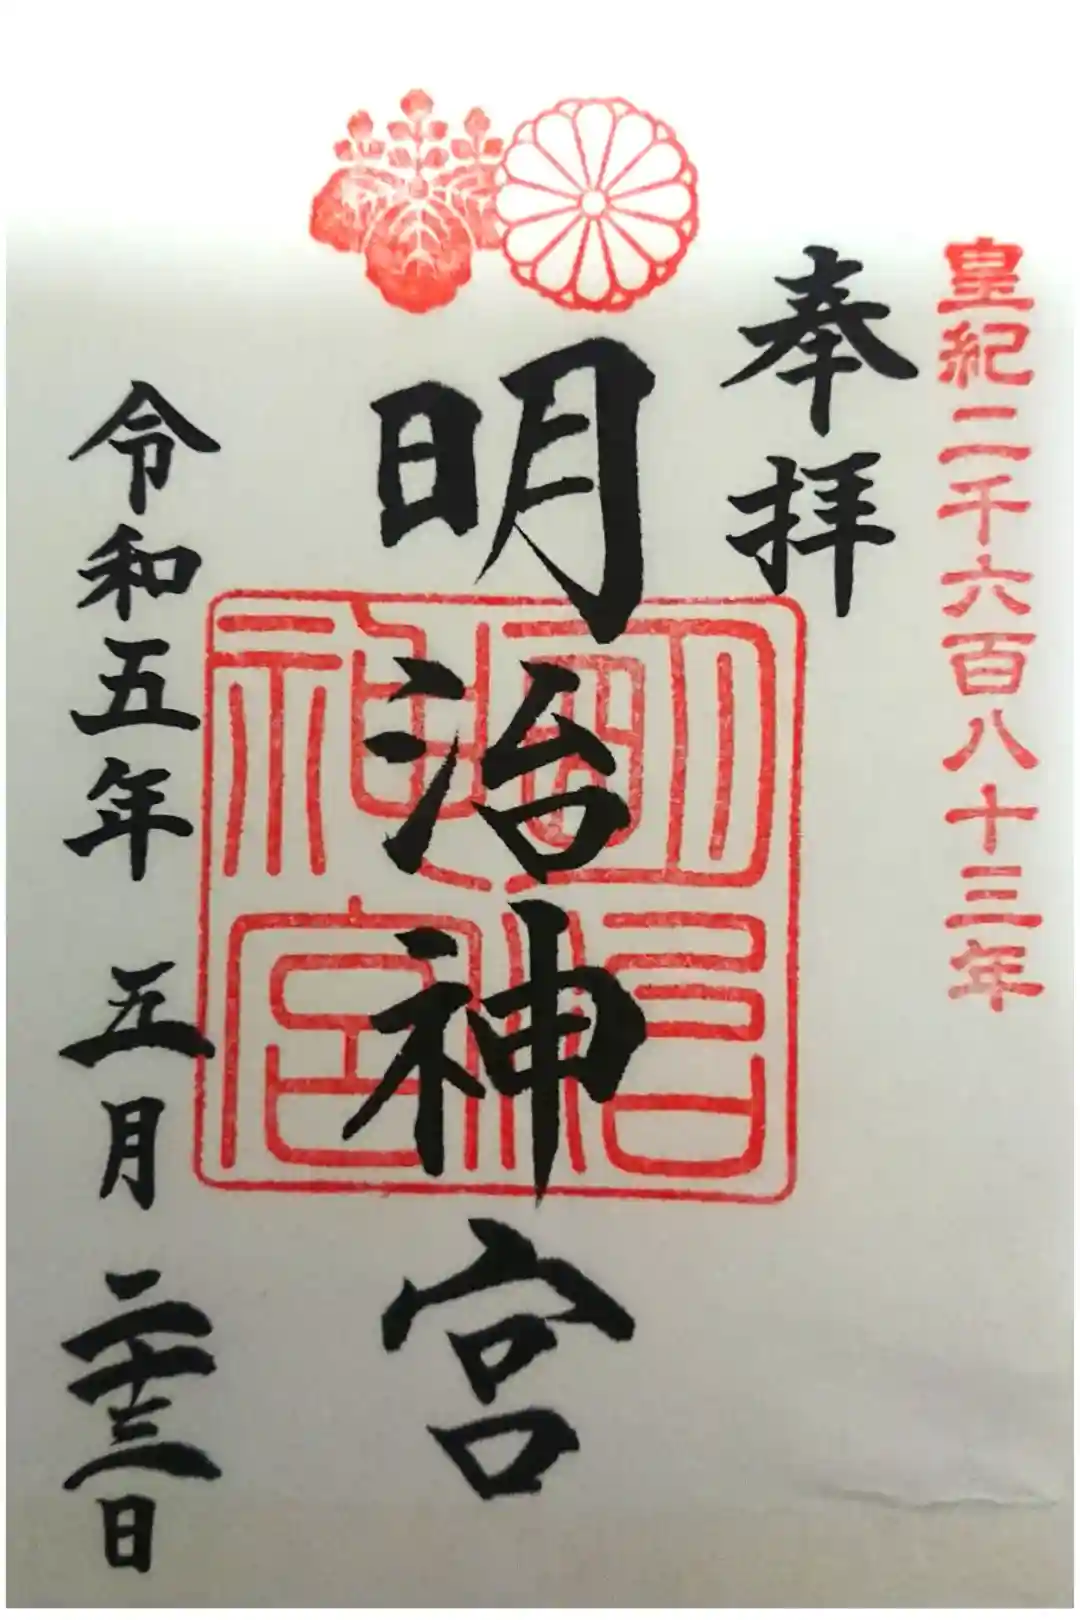 皇紀二千六百八十三年
奉拝
明治神宮
明治神宮
令和五年 五月 二十三日